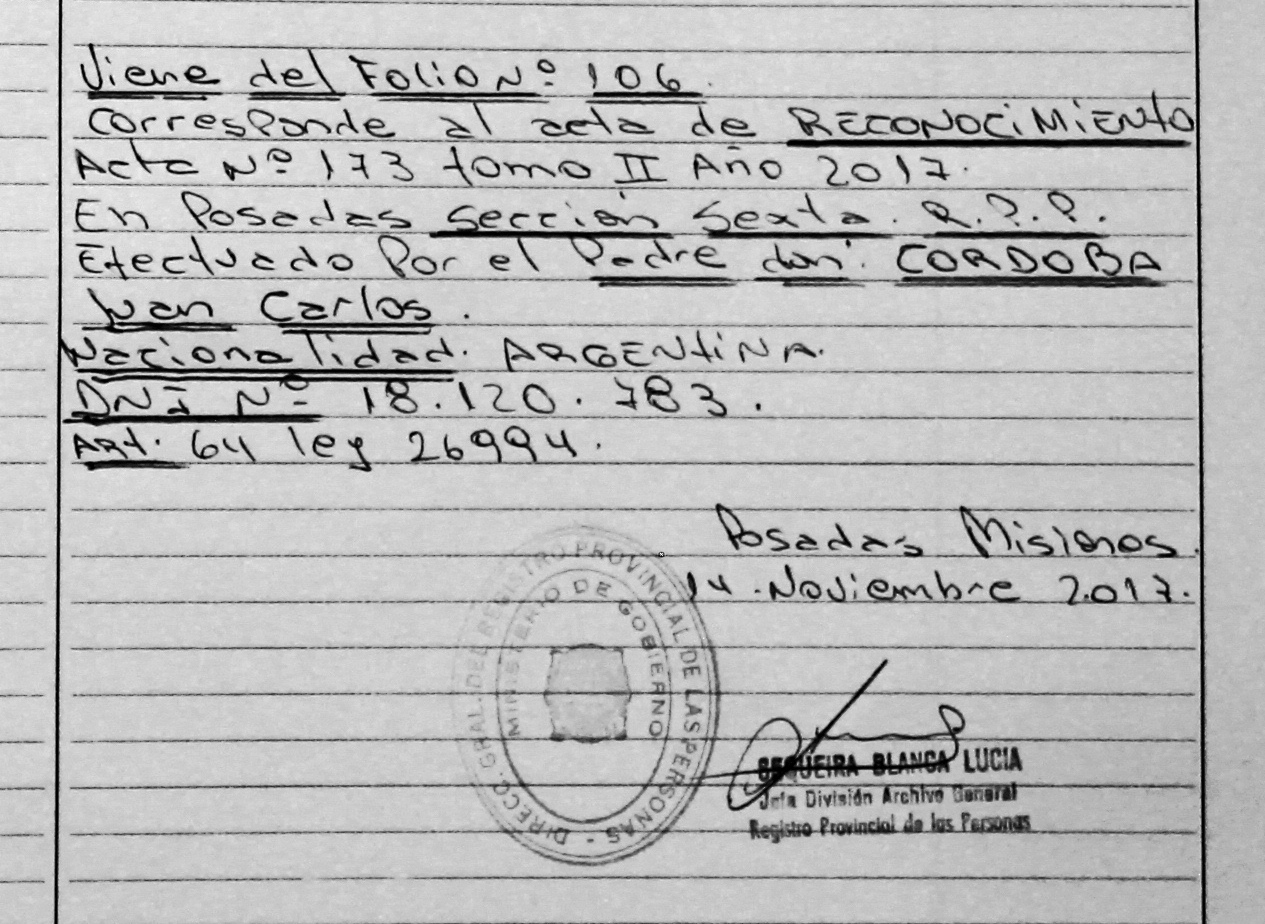 Viene del Folio Nº 106.
Corresponde al acta de RECONOCIMIENTO
Acta Nº 173 tomo II Año 2017.
En Posadas Sección Sexta. R.P.P.
Efectuado Por el Padre don: CORDOBA
Juan Carlos.
Nacionalidad. ARGENTINA.
DNI Nº 18.120.783.
Art. 64 ley 26994.
Posadas Misiones.
14 Noviembre 2.017.
DIRECC. GRAL. DEL REGISTRO PROVINCIAL DE LAS PERSONAS -
MINISTERIO DE GOBIERNO
SEQUEIRA BLANCA LUCIA
Jefa División Archivo General
Registro Provincial de las Personas